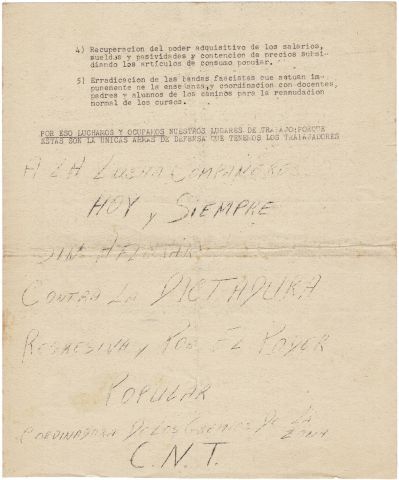 4) Recuperacion del poder adquisitivo de los salarios,
sueldos y pasividades y contencion de precios subsi-
diando los artículos de consumo popular.
5) Erradicacion de las bandas fascistas que actuan im-
punemente ne la enseñanza y coordinacion con docentes,
padres y alumnos de los caminos para la reanudacion
normal de los cursos.
POR ESO LUCHAMOS Y OCUPAMOS NUESTROS LUGARES DE TRABAJO:PORQUE
ESTAS SON LA UNICAS ARMAS DE DEFENSA QUE TENEMOS LOS TRABAJADORES
A LA LUCHA COMPAÑEROS
HOY y SIEMPRE
SIN AFLOJAR
CONTRA LA DICTADURA
REGRESIVA y POR EL PODER
POPULAR
COORDINADORA DE LOS GREMIOS DE LA
ZONA
C.N.T.